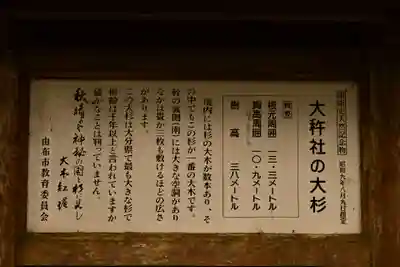 国指定天然記念物　昭和九年八月九日指定
大杵社の大杉
概要
根元周囲　一三・三メートル
胸高周囲　一〇・九メートル
樹　高　三八メートル
境内には杉の大木が数本あり、そ
の中でもこの杉が一番の大木です。
幹の裏側(南)には大きな空洞があり
なかは畳が三枚も敷けるほどの広さ
があります。
この大杉は大分県で最も大きな杉で
樹齢は千年以上と言われていますが
確かなことは判っていません。
大木
由布市教育委員会